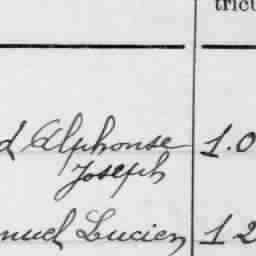 tricu
d Alphonse 1.0
Joseph
nuel Lucien 12